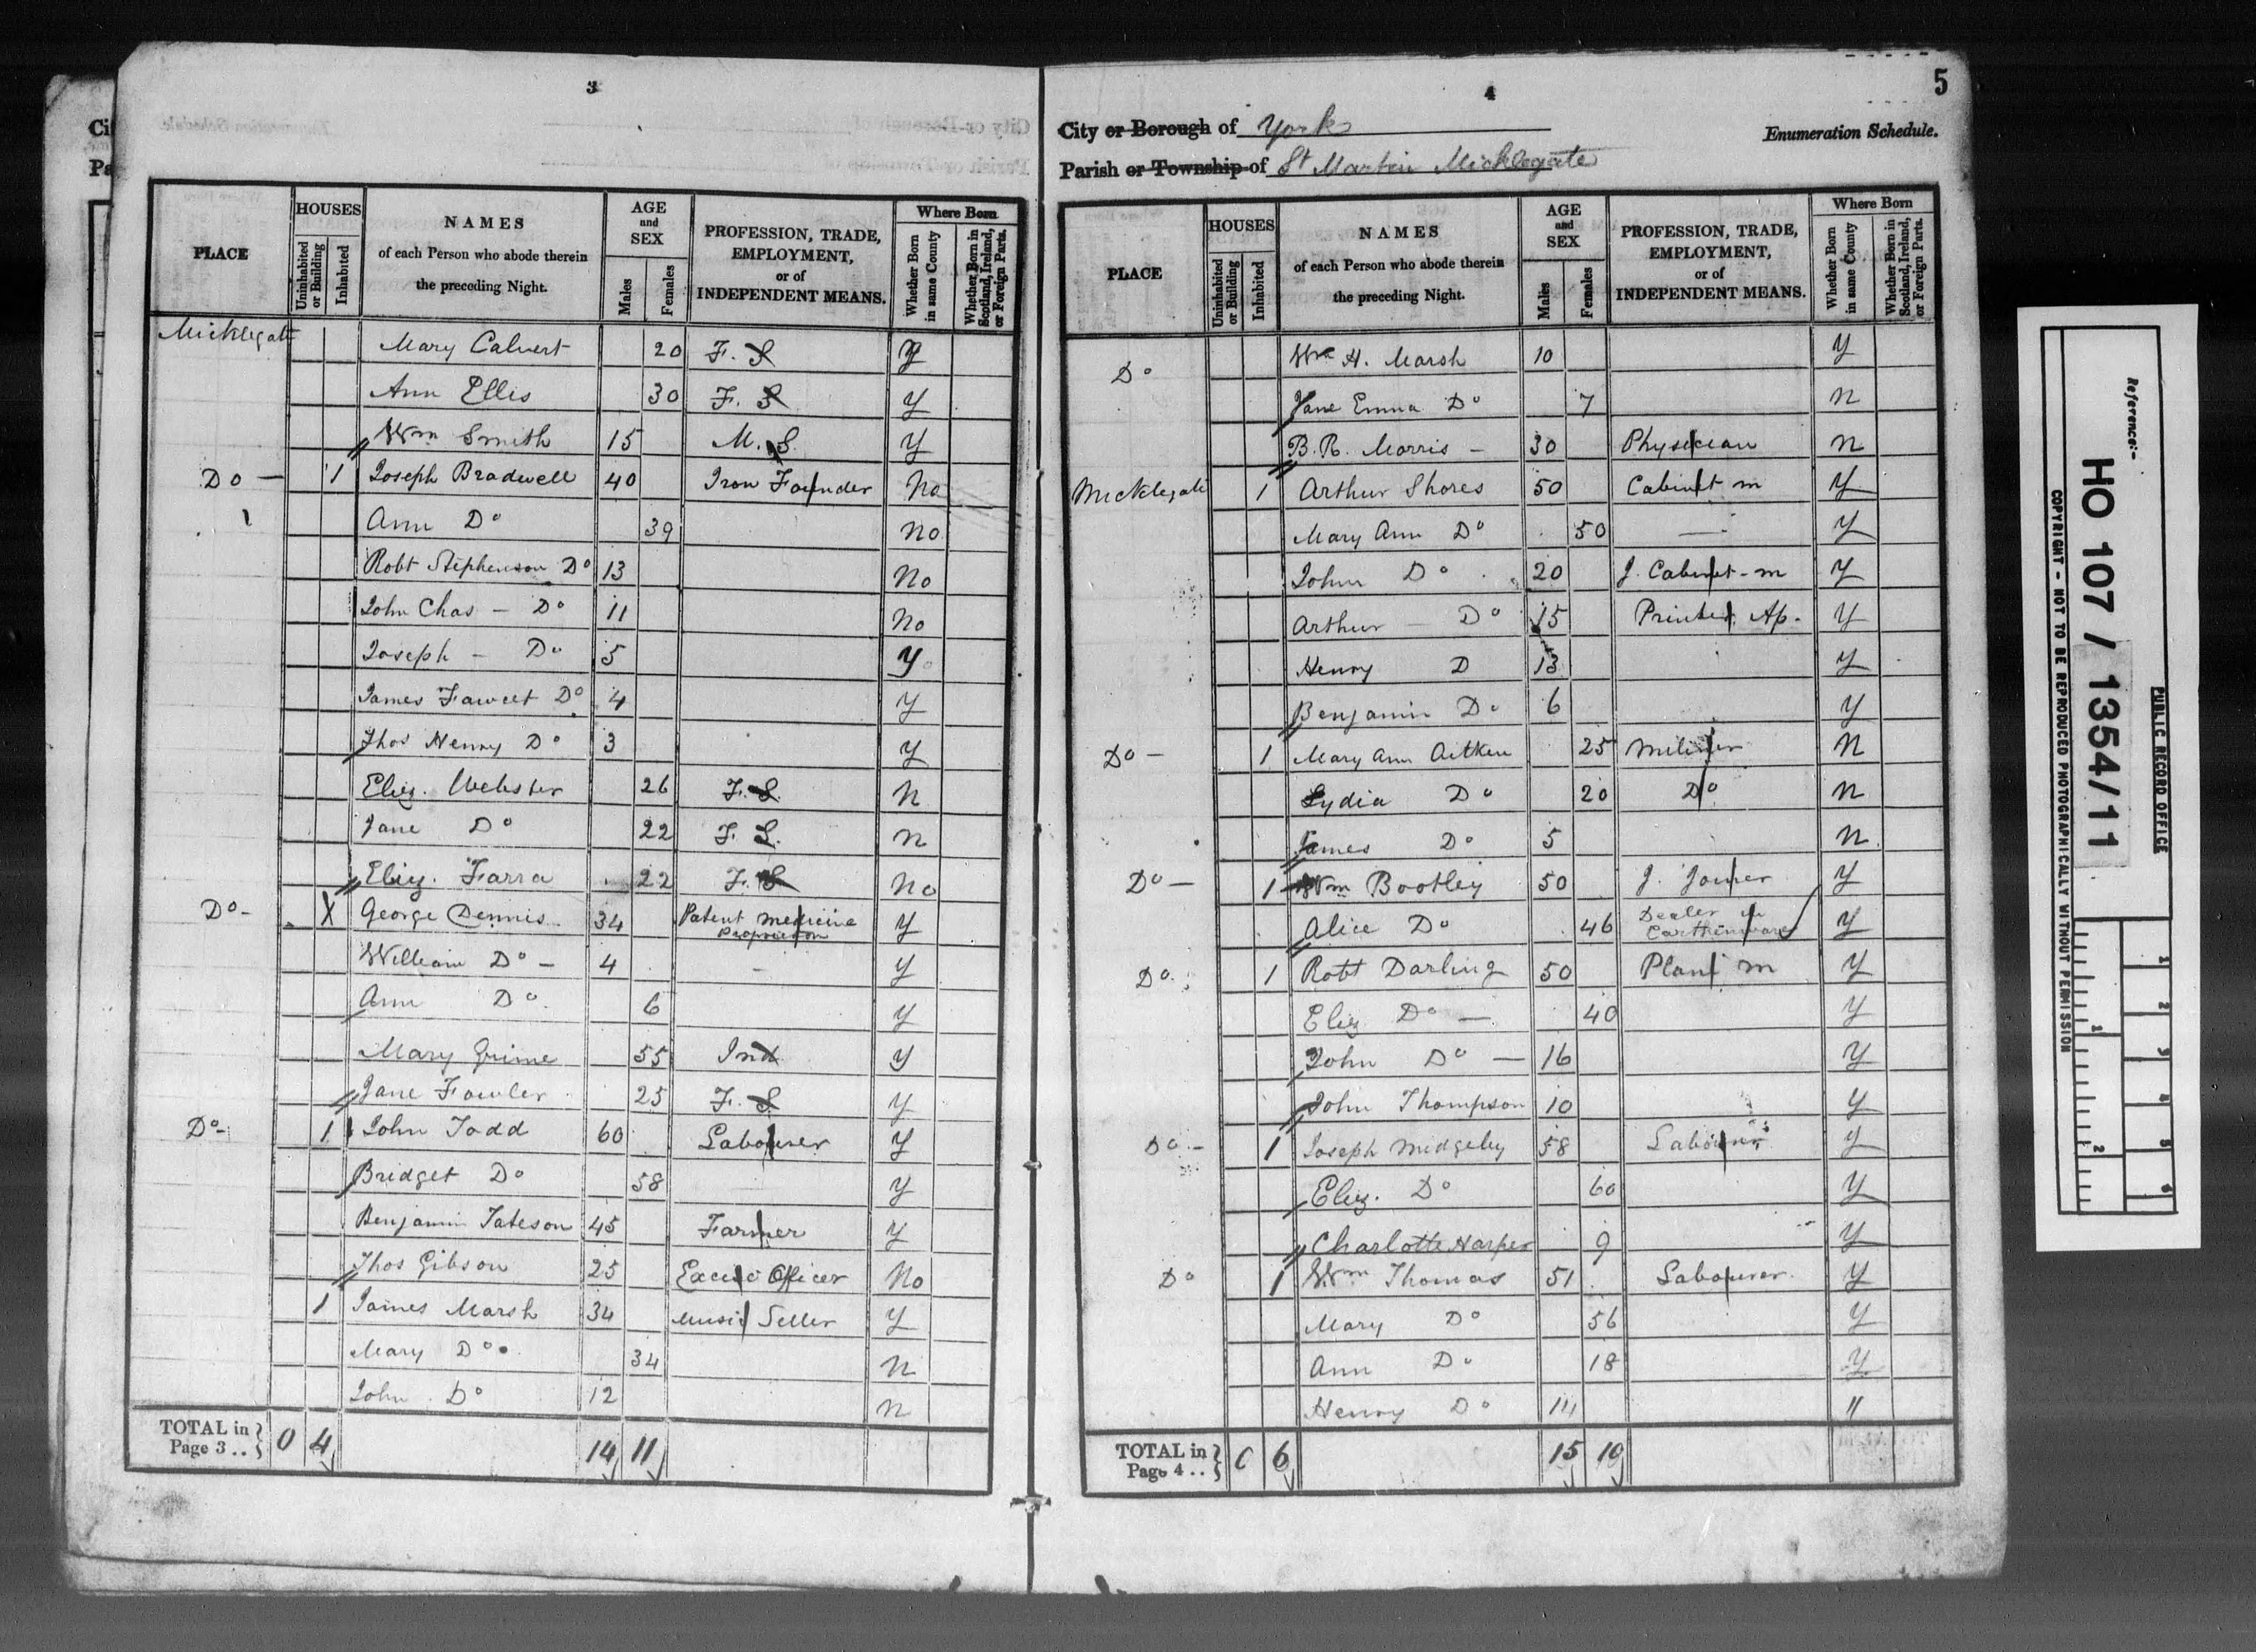 3
PLACE
HOUSES
Uninhabited or Building
Inhabited
NAMES
of each Person who abode therein
the preceding Night.
AGE
and
SEX
Males
Females
PROFESSION, TRADE,
EMPLOYMENT,
or of
INDEPENDENT MEANS.
Where Born
Whether Born in same County
Whether Born in Scotland, Ireland, or Foreign Parts.
Micklegate Mary Calvert 20 F. S y
Ann Ellis 30 F. S y
Wm Smith 15 M. S y
Do — 1 Joseph Bradwell 40 Iron Founder No
Ann Do 39 No
Robt Stephenson Do 13 No
John Chas — Do 11 No
Joseph — Do 5 y
James Fawcet Do 4 y
Thos Henry Do 3 y
Eliz. Webster 26 F. S n
Jane Do 22 F. S. n
Eliz. Farra 22 F. S No
Do - X George Dennis 34 Patent Medicine Proprietor y
William Do — 4 y
Ann Do 6 y
Mary Grime 55 Ind y
Jane Fowler 25 F. S y
Do - 1 John Todd 60 Labourer y
Bridget Do 58 y
Benjamin Tateson 45 Farmer y
Thos Gibson 25 Excise Officer No
1 James Marsh 34 Music Seller y
Mary Do 34 n
John Do 12 n
TOTAL in Page 3 .. } 0 4 14 11
4
5
City or Borough of York
Enumeration Schedule.
Parish or Township of St Martin Micklegate
PLACE
HOUSES
Uninhabited or Building
Inhabited
NAMES
of each Person who abode therein
the preceding Night.
AGE
and
SEX
Males
Females
PROFESSION, TRADE,
EMPLOYMENT,
or of
INDEPENDENT MEANS.
Where Born
Whether Born in same County
Whether Born in Scotland, Ireland, or Foreign Parts.
Do Wm H. Marsh 10 y
Jane Emma Do 7 n
B. R. Morris — 30 Physician n
Micklegate 1 Arthur Shores 50 Cabinet m y
Mary Ann Do 50 — y
John Do 20 J. Cabinet - m y
Arthur — Do 15 Printer Ap. y
Henry D 13 y
Benjamin Do 6 y
Do — 1 Mary Ann Aitken 25 Miliner N
Lydia Do 20 Do n
James Do 5 n
Do — 1 Wm Bootley 50 J. Joiner y
Alice Do 46 Dealer in Earthenware y
Do. 1 Robt Darling 50 Plan m y
Eliz Do — 40 y
John Do — 16 y
John Thompson 10 y
Do - 1 Joseph Midgeley 58 Labourer y
Eliz. Do 60 y
Charlotte Harper 9 y
Do 1 Wm Thomas 51 Labourer y
Mary Do 56 y
Ann Do 18 y
Henry Do 14 "
TOTAL in Page 4 .. } 0 6 15 10
Reference:-
HO 107 / 1354/11
PUBLIC RECORD OFFICE
COPYRIGHT - NOT TO BE REPRODUCED PHOTOGRAPHICALLY WITHOUT PERMISSION